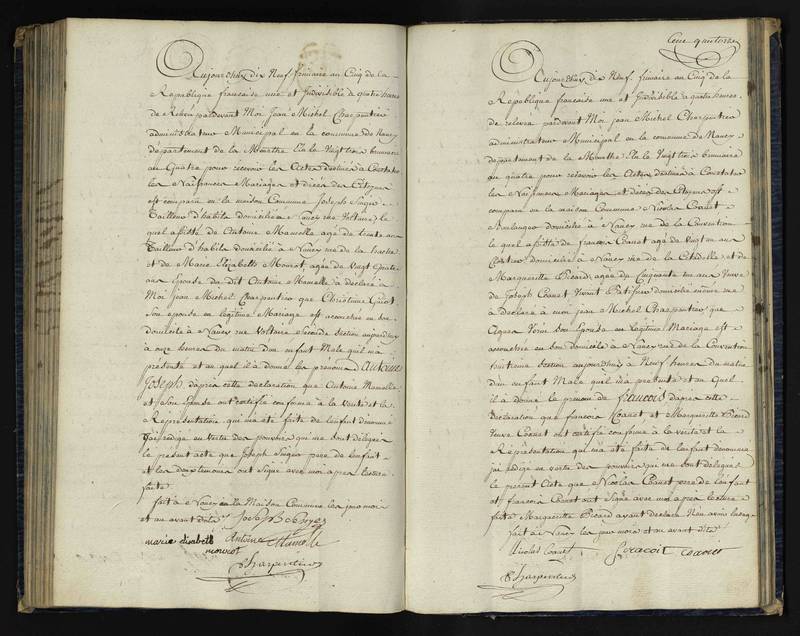 Aujourdhuy dix Neuf frimaire au Cinq de la
Republique francaise une et Jndivisible a quatre heures
de Relevée pardevant Moi Jean Michel Charpentier
administrateur Municipal en la commune de Nancy
departement de la Meurthe Elu le Vingt brumaire
au Quatre pour recevoir les Actes destinés à Constater
les Naissances Mariages et decès des Citoyens
est comparu en la maison Commune Joseph
Tailleur d'habits domicilié a Nancy rue Voltaire, le
quel assisté de Antoine Mamelle agé de trente ans
Tailleur d'habits domicilié à Nancy rue de la
et de Marie Elizabeth Mourot agée de Vingt
ans Epouse du dit Antoine Mamelle à déclaré à
Moi Jean Michel Charpentier que Christine
Son epouse en legitime Mariage est accouchée en son
domicile a Nancy rue Voltaire seconde Section aujourdhuy
à onze heures du matin d'un enfant Male qu'il m'a
présenté et au quel il a donné les prénoms d'Antoine
Joseph d'après cette declaration que Antoine Mamelle
et Son Epouse ont certifié conforme a la verité et la
Représentation qui m'a été faite de l'enfant denommé
j'ai redigé en vertu des pouvoirs qui me sont delegués
le présent acte que Joseph pere de l'enfant
et les deux temoins ont signé avec moi apres lecture
faite
fait a Nancy en la Maison Commune les jour mois
et an avant dits Joseph
marie elisabeth Antoine Mamelle
mourot
Charpentier
Cent quatorze
Aujourdhuy dix Neuf frimaire au Cinq de la
Republique francaise une et Jndivisible a quatre heures
de relevee pardevant Moi Jean Michel Charpentier
administrateur Municipal en la commune de Nancy
departement de la Meurthe Elu le Vingt brumaire
au quatre pour recevoir les Actes destinés à Constater
les Naissances Mariages et decès des Citoyens est
comparu en la maison Commune Nicolas Coanet
Boulanger domicilié a Nancy rue de la Convention
le quel assisté de francois Coanet agé de Vingt un ans
domicilié à Nancy rue de la Citadelle et de
Marguerite Picard agée de Cinquante un ans Veuve
de Joseph Coanet Vivant Patissier domiciliée même rue
a declaré a moi jean Michel Charpentier que
son Epouse en Legitime Mariage est
accouchée en son domicile a Nancy rue de la Convention
huitieme Section aujourdhuy à Neuf heures du matin
d'un enfant Male quel m'a presenté et au Quel
il a donné le prenom de francois d'après cette
declaration que francois Coanet et Marguerite Picard
Veuve Coanet ont certifié conforme à la vérité et la
Représentation qui m'a été faite de l'enfant denommé
j'ai redigé en vertu des pouvoirs qui me sont delegués
le present Acte que Nicolas Coanet pere de l'enfant
et francois Coanet ont Signé avec moi après lecture
faite Marguerite Picard ayant declaré N'en avoir l'usage
fait a Nancy les jour mois et an avant dits
Nicolas Coanet francois coanet
Charpentier